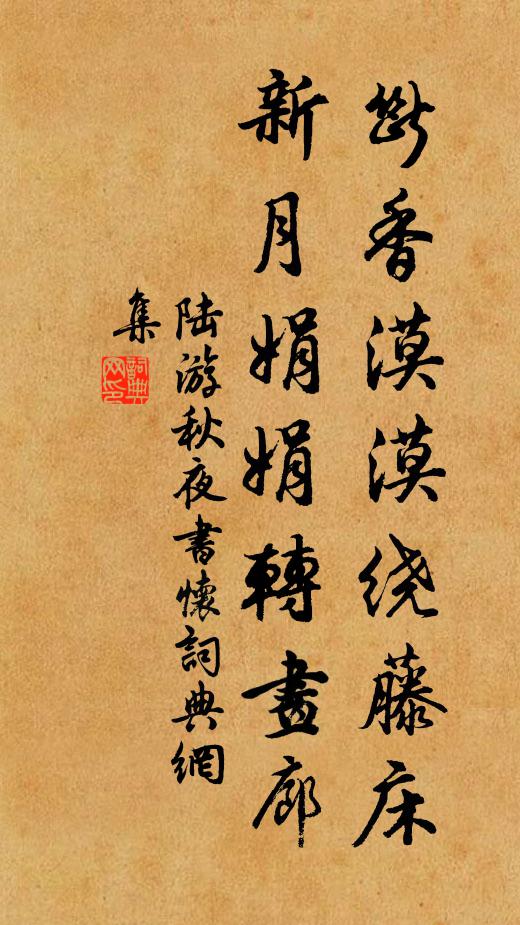 断香漠漠绕藤床
新月娟娟轉畫廊
陆游秋夜書懷詞典網
集
詞典
网印